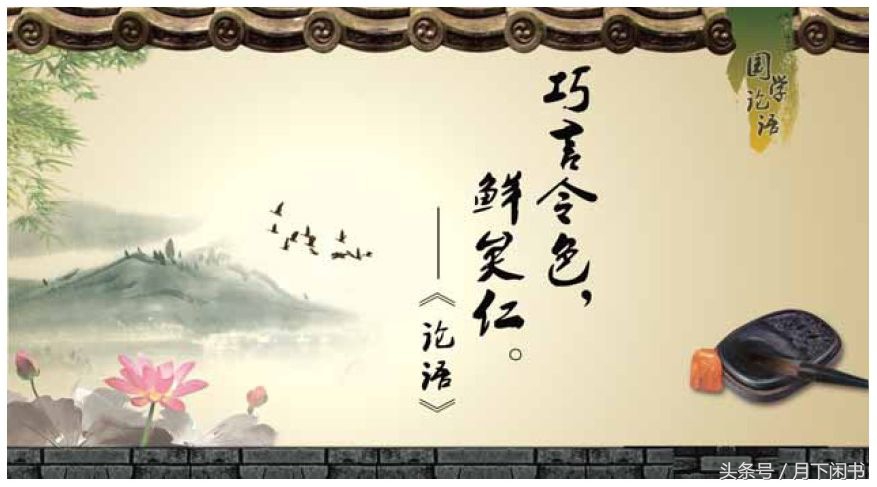 国学论语
巧言令色，
鲜矣仁。
——《论语》
头条号 / 月下闲书